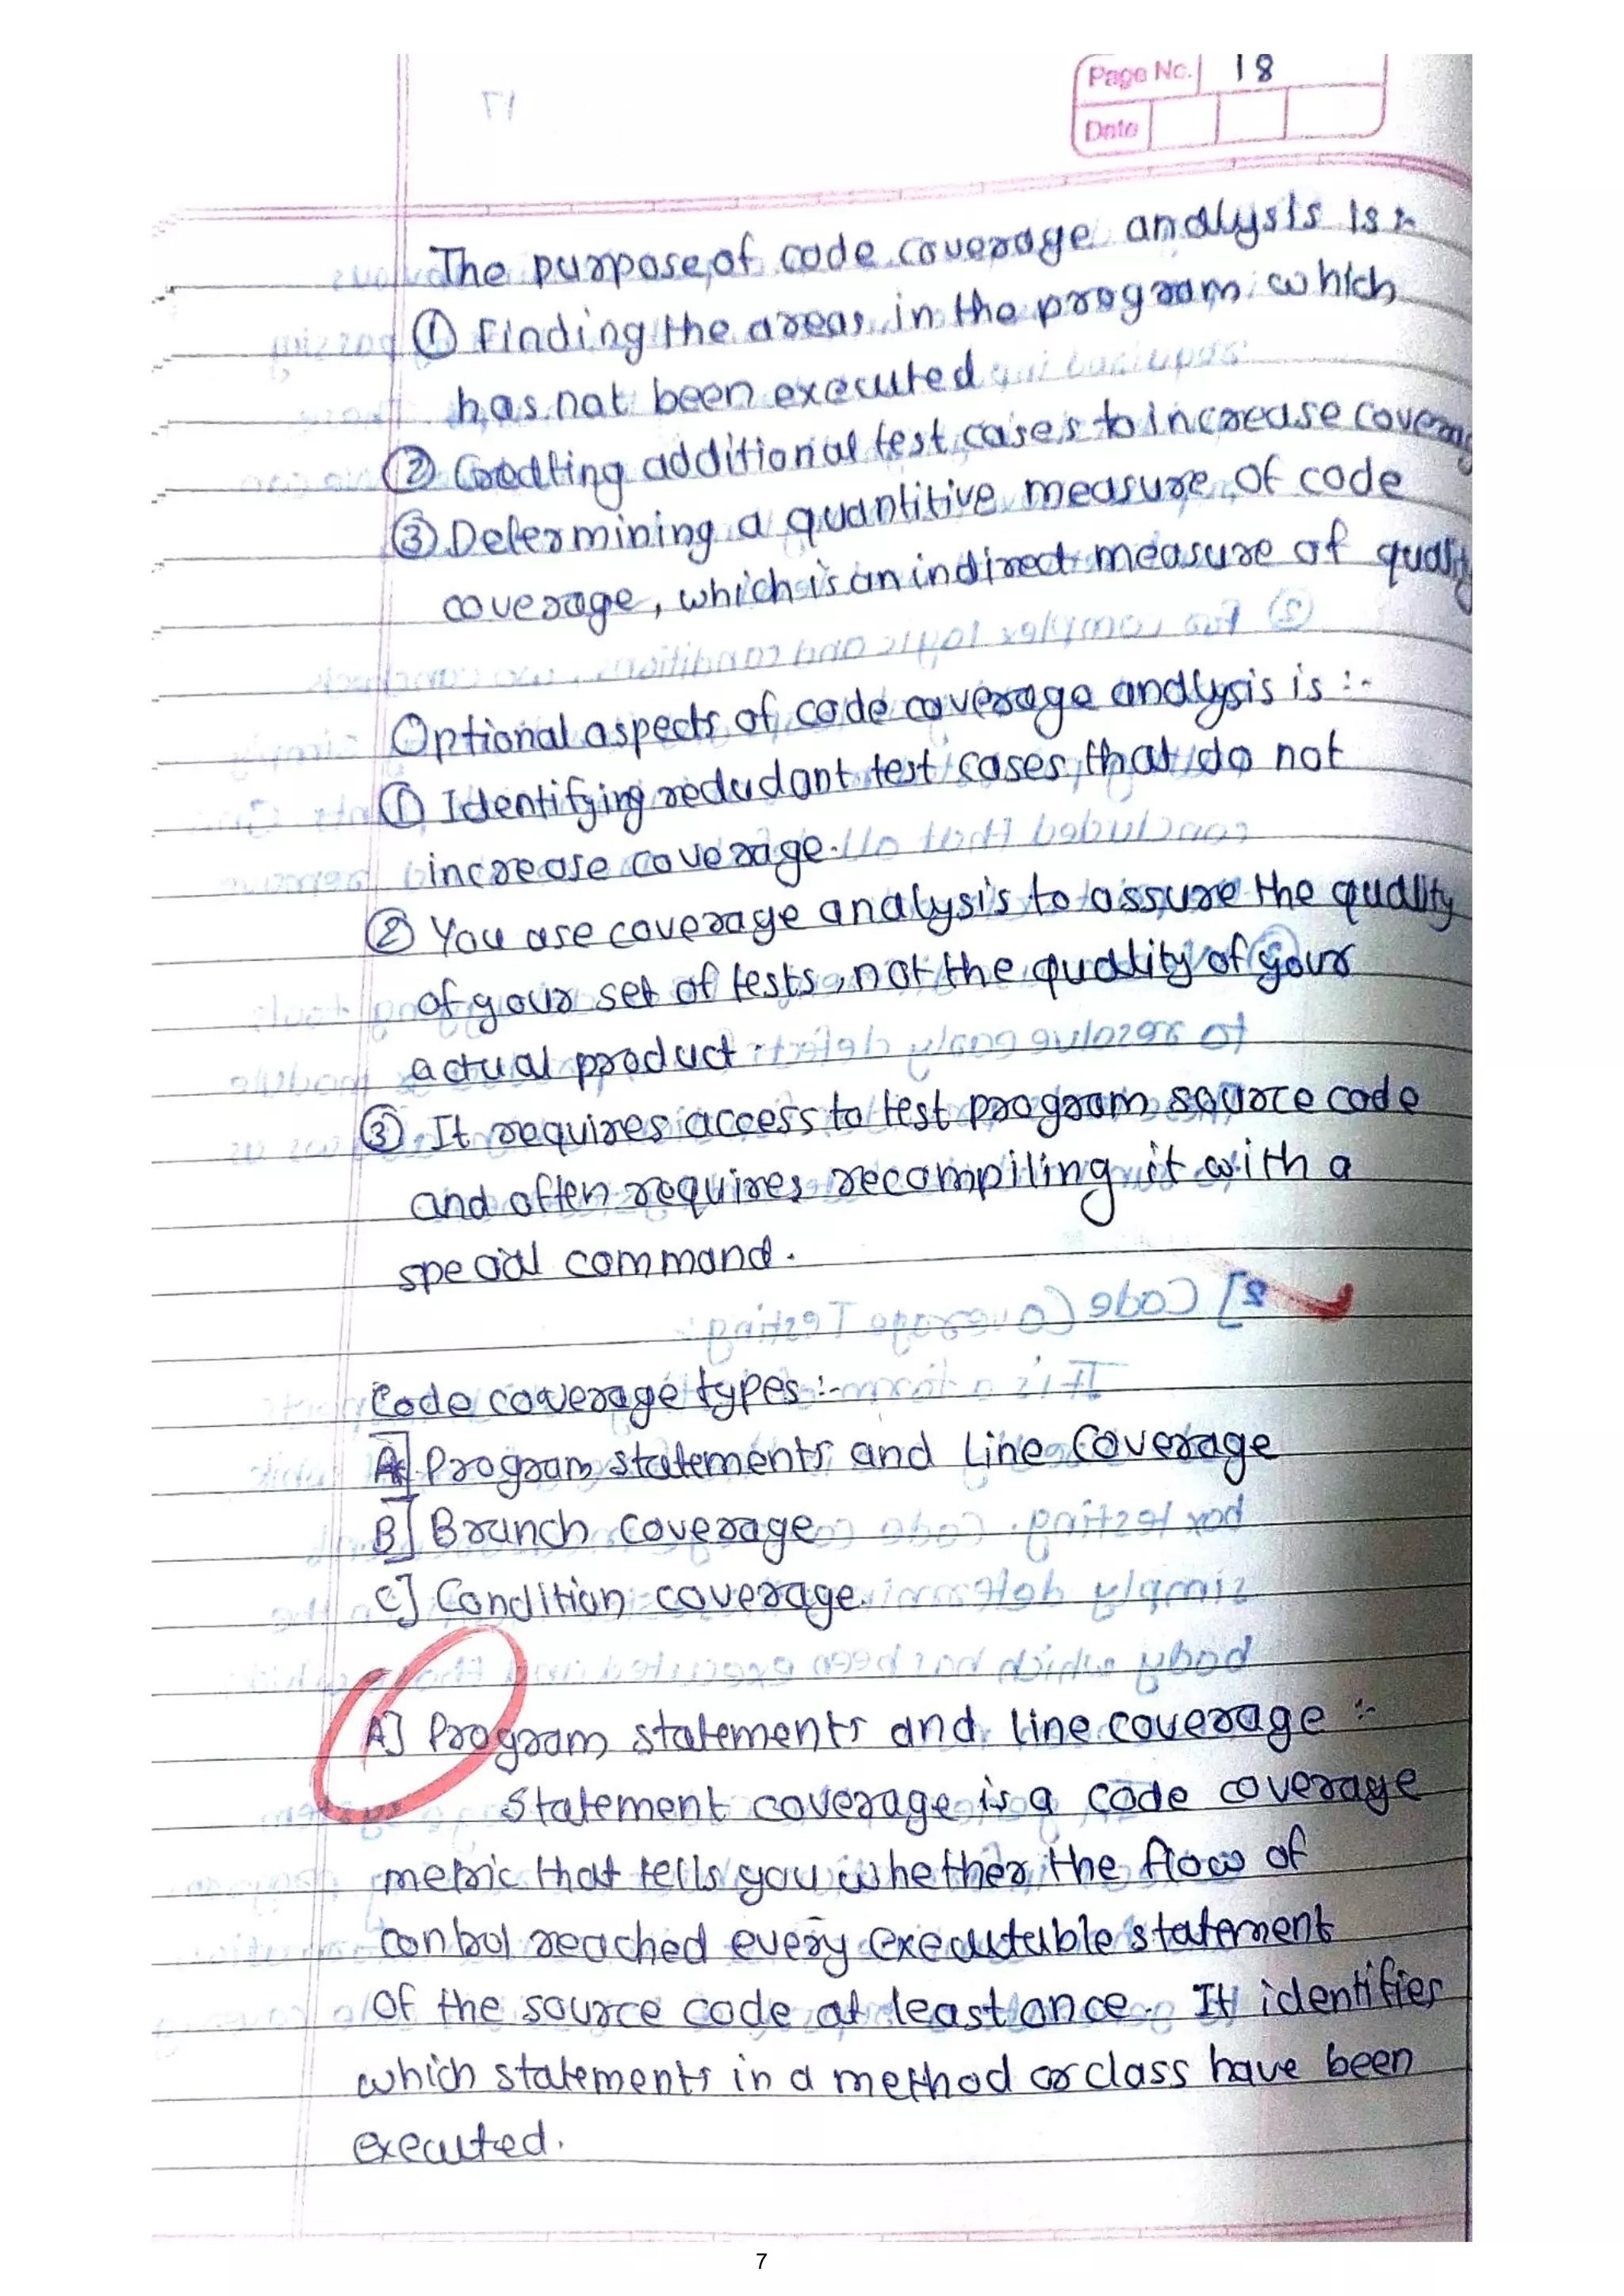 Page No. 18
Date
The purpose of code coverage analysis is :-
① Finding the areas in the program which
has not been executed
② Creating additional test cases to increase coverag
③ Determining a quantitive measure of code
coverage, which is an indirect measure of quality
Optional aspects of code coverage analysis is :-
① Identifying redudant test cases that do not
increase coverage.
② You use coverage analysis to assure the quality
of your set of tests, not the quality of your
actual product.
③ It requires access to test program source code
and often requires recompiling it with a
special command.
Code coverage types :-
A] Program statements and Line Coverage
B] Branch coverage
C] Condition coverage.
A] Program statements and line coverage :-
Statement coverage is a code coverage
metric that tells you whether the flow of
control reached every executable statement
of the source code at least once. It identifies
which statements in a method or class have been
executed.
7